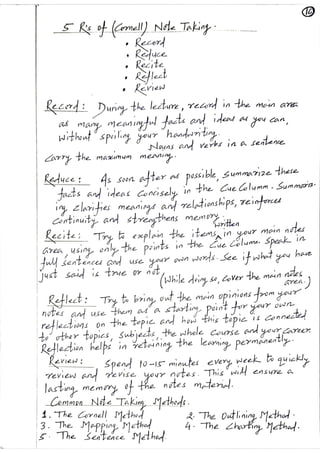 16
5 R's of (Cornell) Note Taking.
• Record
• Reduce
• Recite
• Reflect
• Review
Record: During the lecture, record in the main area
as many meaningful facts and ideas as you can,
without spoiling your handwriting.
Nouns and verbs in a sentence
carry the maximum meaning.
Reduce: As soon after as possible, summarize these
facts and ideas concisely in the Cue Column. Summariz-
ing clarifies meanings and relationships, reinforces
continuity and strengthens memory.
Recite: Try to explain the items written in your main notes
area using only the points in the Cue Column. Speak in
full sentences and use your own words. See if what you have
just said is true or not. (While doing so, cover the main notes
area.)
Reflect: Try to bring out the main opinions from your
notes and use them as a starting point for your own
reflections on the topic and how this topic is connected
to other topics, subjects, the whole course and your career
Reflection helps in retaining the learning permanently.
Review: Spend 10-15 minutes every week to quickly
review and revise your notes. This will ensure a
lasting memory of the notes material.
Common Note Taking Methods.
1. The Cornell Method 2. The Outlining Method.
3. The Mapping Method 4. The Charting Method.
5. The Sentence Method